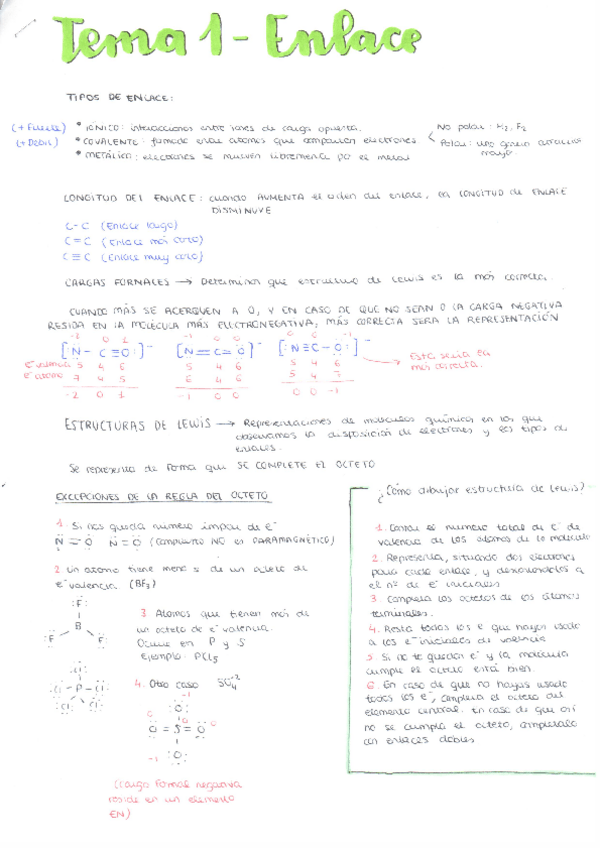 Tema 1 - Enlace
TIPOS DE ENLACE:
(+ Fuerte) * IÓNICO: interacciones entre iones de carga opuesta.
(+ Debil) * COVALENTE: formado entre átomos que comparten electrones
No polar: H2, F2
Polar: uno genera atracción mayor.
* METÁLICO: electrones se mueven libremente por el metal
LONGITUD DEL ENLACE: cuando AUMENTA el orden del enlace, la LONGITUD de ENLACE
DISMINUYE
C-C (Enlace largo)
C=C (Enlace más corto)
C≡C (Enlace muy corto)
CARGAS FORMALES → Determinar que estructura de Lewis es la más correcta.
CUANDO MÁS SE ACERQUEN A 0, Y EN CASO DE QUE NO SEAN 0 LA CARGA NEGATIVA
RESIDA EN LA MOLÉCULA MÁS ELECTRONEGATIVA, MÁS CORRECTA SERA LA REPRESENTACIÓN
-2 0 1 -1 0 0 0 0 -1
[:N-C≡O:]⁻ [N=C=O]⁻ [:N≡C-O:]⁻ → Esta seria la
más correcta.
e⁻ valencia 5 4 6 5 4 6 5 4 6
e⁻ átomo 7 4 5 6 4 6 5 4 7
-2 0 1 -1 0 0 0 0 -1
ESTRUCTURAS DE LEWIS → Representaciones de moléculas química en las que
observamos la disposición de electrones y los tipos de
enlaces.
Se representa de forma que SE COMPLETE EL OCTETO
EXCEPCIONES DE LA REGLA DEL OCTETO
1. Si nos queda número impar de e⁻
N=O N=O (compuesto NO es PARAMAGNÉTICO)
2. Un átomo tiene menos de un octeto de
e⁻ valencia (BF3)
:F:
B
:F F:
3. Átomos que tienen más de
un octeto de e⁻ valencia.
Ocurre en P y S
ejemplo: PCl5
:Cl:
:Cl-P-Cl:
:Cl: Cl:
4. Otro caso SO4⁻²
:O:
O=S=O
:O:
(carga formal negativa
reside en un elemento
EN)
¿Cómo dibujar estructura de Lewis?
1. Contar el número total de e⁻ de
valencia de los átomos de la molécula
2. Representa, situando dos electrones
para cada enlace, y descontándolos a
el nº de e⁻ iniciales
3 Completa los octetos de los átomos
terminales.
4. Resta todos los e⁻ que hayas usado
a los e⁻ iniciales de valencia
5 Si no te quedan e⁻ y la molécula
cumple el octeto está bien.
6. En caso de que no hayas usado
todos los e⁻, completa el octeto del
elemento central. En caso de que así
no se cumpla el octeto, complétalo
con enlaces dobles